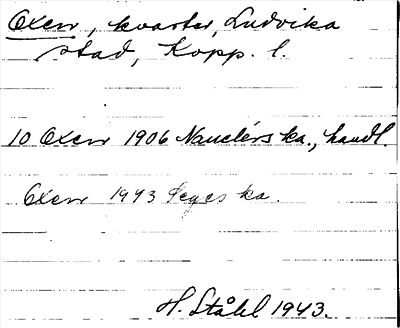 Oxen, kvarter, Ludvika
stad, Kopp. l.
10 Oxen 1906 Nauclérs ka., handl.
Oxen 1943 Seges ka.
H. Ståhl 1943.